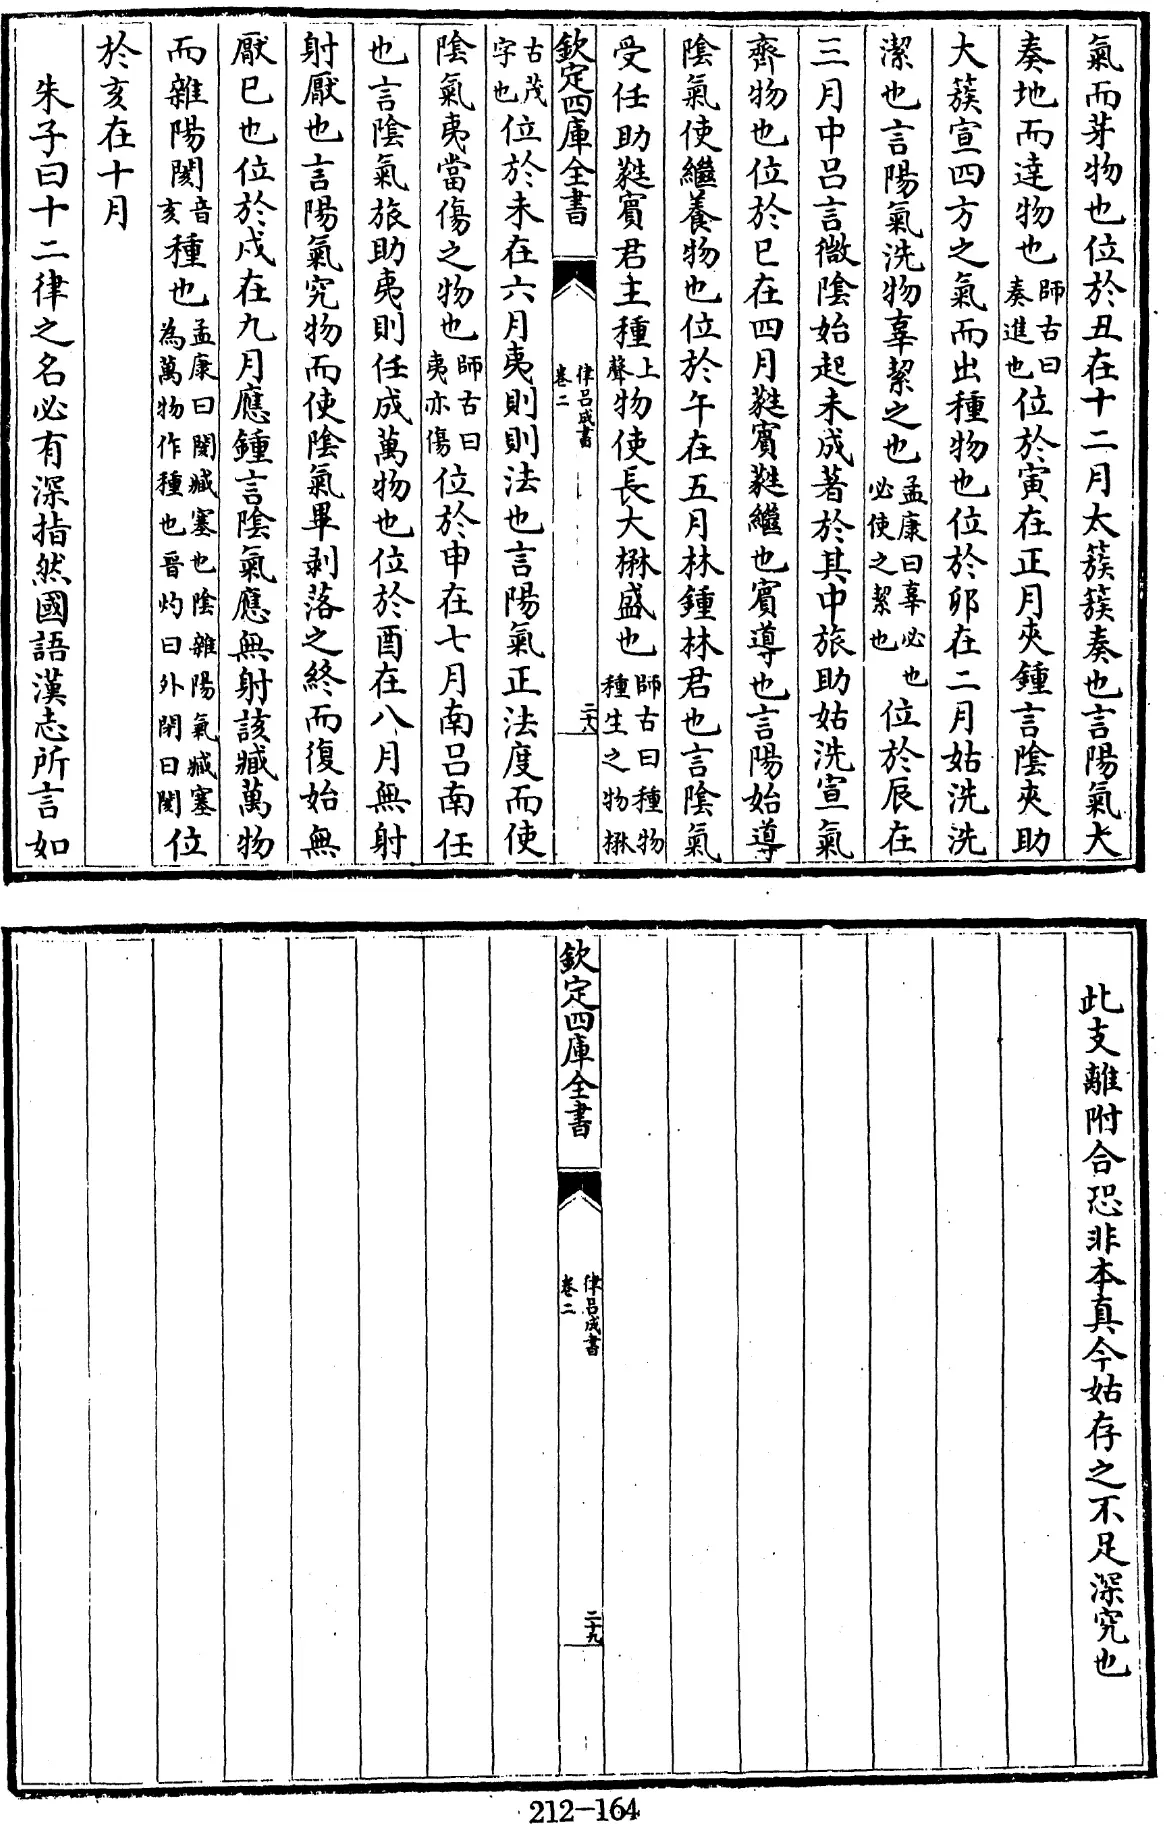 氣而芽物也位於丑在十二月太簇簇奏也言陽氣大
奏地而達物也師古曰奏進也位於寅在正月夾鍾言陰夾助
大簇宣四方之氣而出種物也位於卯在二月姑洗洗
潔也言陽氣洗物辜絜之也孟康曰辜必也必使之絜也位於辰在
三月中呂言微陰始起未成著於其中旅助姑洗宣氣
齊物也位於巳在四月蕤賓蕤繼也賓導也言陽始導
陰氣使繼養物也位於午在五月林鍾林君也言陰氣
受任助蕤賓君主種上聲物使長大楙盛也師古曰種物種生之物楙
欽定四庫全書
律呂成書
卷二
二六
古茂字也位於未在六月夷則則法也言陽氣正法度而使
陰氣夷當傷之物也師古曰夷亦傷位於申在七月南呂南任
也言陰氣旅助夷則任成萬物也位於酉在八月無射
射厭也言陽氣究物而使陰氣畢剥落之終而復始無
厭已也位於戌在九月應鍾言陰氣應無射該臧萬物
而雜陽閡音亥種也孟康曰閡臧塞也陰雜陽氣臧塞為萬物作種也晉灼曰外閉曰閡位
於亥在十月
朱子曰十二律之名必有深指然國語漢志所言如
此支離附合恐非本真今姑存之不足深究也
欽定四庫全書
律呂成書
卷二
二十九
212-164